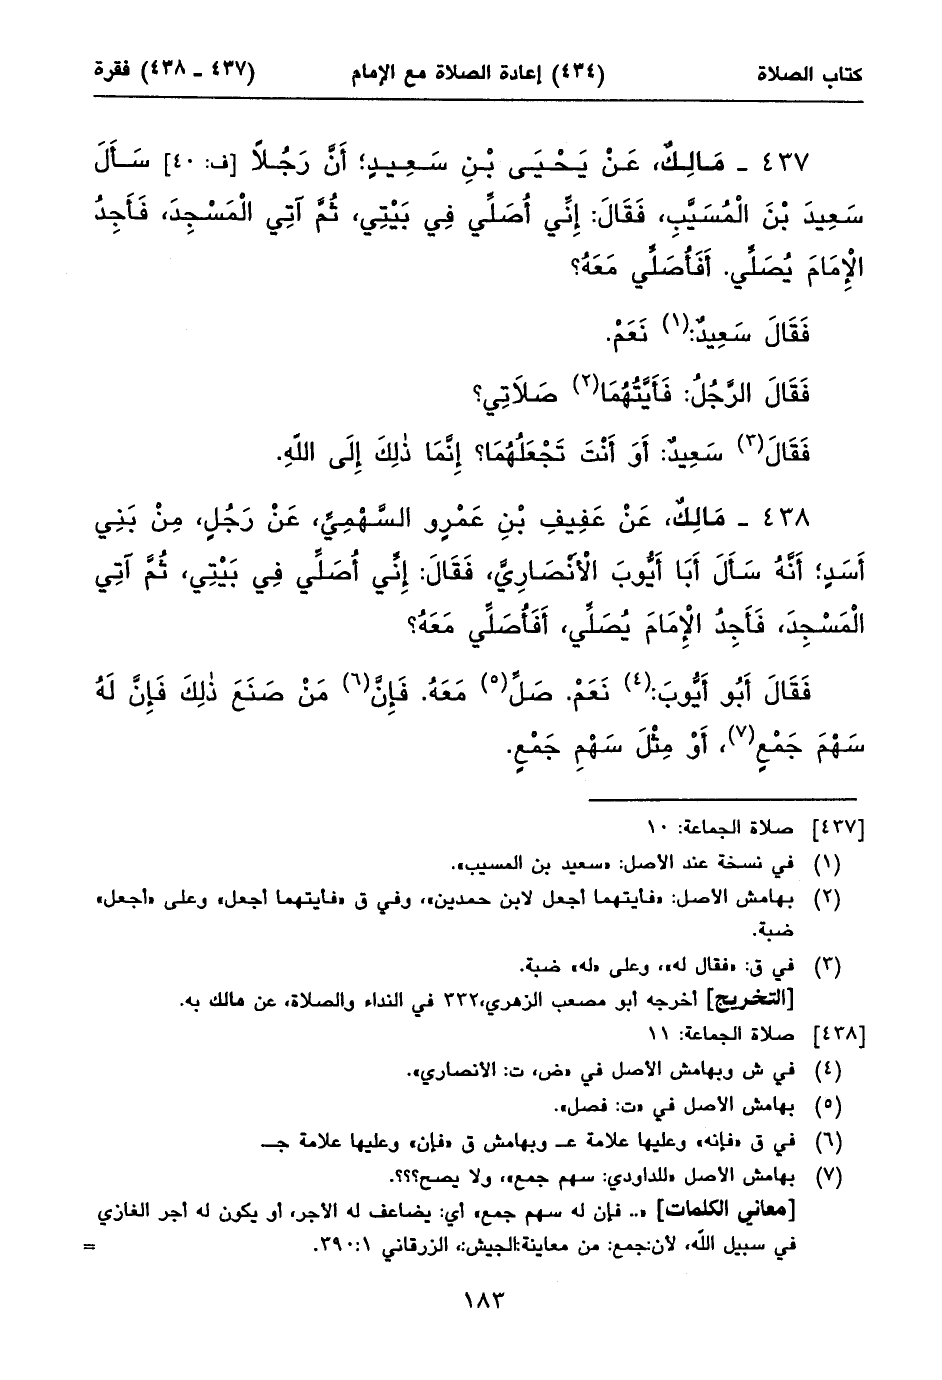 كتاب الصلاة (٤٣٤) إعادة الصلاة مع الإمام (٤٣٧ ـ ٤٣٨) فقرة
٤٣٧ ـ مَالِكٌ، عَنْ يَحْيَى بْنِ سَعِيدٍ؛ أَنَّ رَجُلاً [ف: ٤٠] سَأَلَ
سَعِيدَ بْنَ الْمُسَيَّبِ، فَقَالَ: إِنِّي أُصَلِّي فِي بَيْتِي، ثُمَّ آتِي الْمَسْجِدَ، فَأَجِدُ
الْإِمَامَ يُصَلِّي. أَفَأُصَلِّي مَعَهُ؟
فَقَالَ سَعِيدٌ:(١) نَعَمْ.
فَقَالَ الرَّجُلُ: فَأَيَّتُهُمَا(٢) صَلاَتِي؟
فَقَالَ(٣) سَعِيدٌ: أَوَ أَنْتَ تَجْعَلُهُمَا؟ إِنَّمَا ذٰلِكَ إِلَى اللَّهِ.
٤٣٨ ـ مَالِكٌ، عَنْ عَفِيفِ بْنِ عَمْرٍو السَّهْمِيِّ، عَنْ رَجُلٍ، مِنْ بَنِي
أَسَدٍ؛ أَنَّهُ سَأَلَ أَبَا أَيُّوبَ الْأَنْصَارِيَّ، فَقَالَ: إِنِّي أُصَلِّي فِي بَيْتِي، ثُمَّ آتِي
الْمَسْجِدَ، فَأَجِدُ الْإِمَامَ يُصَلِّي، أَفَأُصَلِّي مَعَهُ؟
فَقَالَ أَبُو أَيُّوبَ:(٤) نَعَمْ. صَلِّ(٥) مَعَهُ. فَإِنَّ(٦) مَنْ صَنَعَ ذٰلِكَ فَإِنَّ لَهُ
سَهْمَ جَمْعٍ(٧)، أَوْ مِثْلَ سَهْمِ جَمْعٍ.
[٤٣٧] صلاة الجماعة: ١٠
(١) في نسخة عند الأصل: «سعيد بن المسيب».
(٢) بهامش الأصل: «فأيتهما أجعل لابن حمدين»، وفي ق «فأيتهما أجعل» وعلى «أجعل»
ضبة.
(٣) في ق: «فقال له»، وعلى «له» ضبة.
[التخريج] أخرجه أبو مصعب الزهري،٣٣٢ في النداء والصلاة، عن مالك به.
[٤٣٨] صلاة الجماعة: ١١
(٤) في ش وبهامش الأصل في «ض، ت: الأنصاري».
(٥) بهامش الأصل في «ت: فصل».
(٦) في ق «فإنه» وعليها علامة عـ وبهامش ق «فإن» وعليها علامة جـ
(٧) بهامش الأصل «للداودي: سهم جمع»، ولا يصح؟؟؟.
[معاني الكلمات] «.. فإن له سهم جمع» أي: يضاعف له الأجر، أو يكون له أجر الغازي
في سبيل اللّه، لأن:جمع: من معاينة:الجيش:، الزرقاني ٣٩٠:١. =
١٨٣